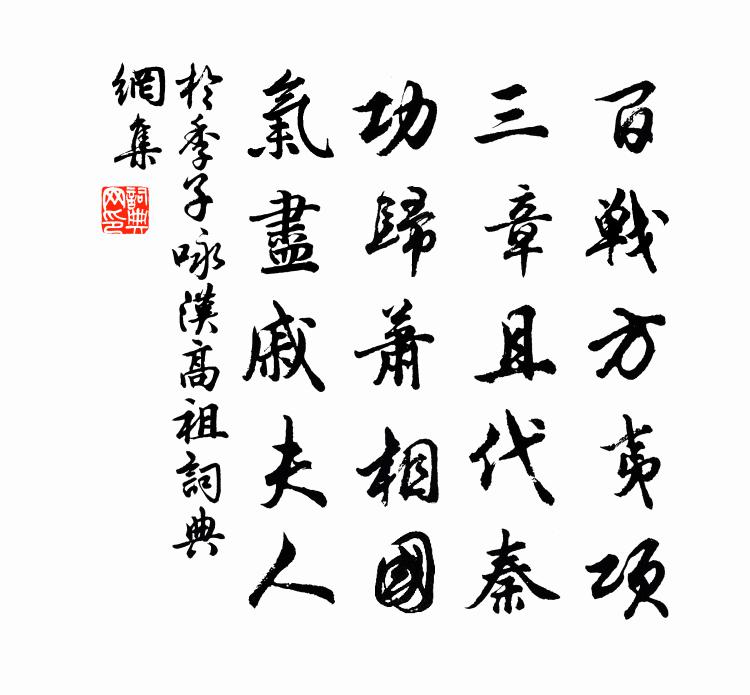 百戰方夷項
三章且代秦
功歸蕭相國
氣盡戚夫人
於季子咏漢高祖詞典
網集
詞典
网印